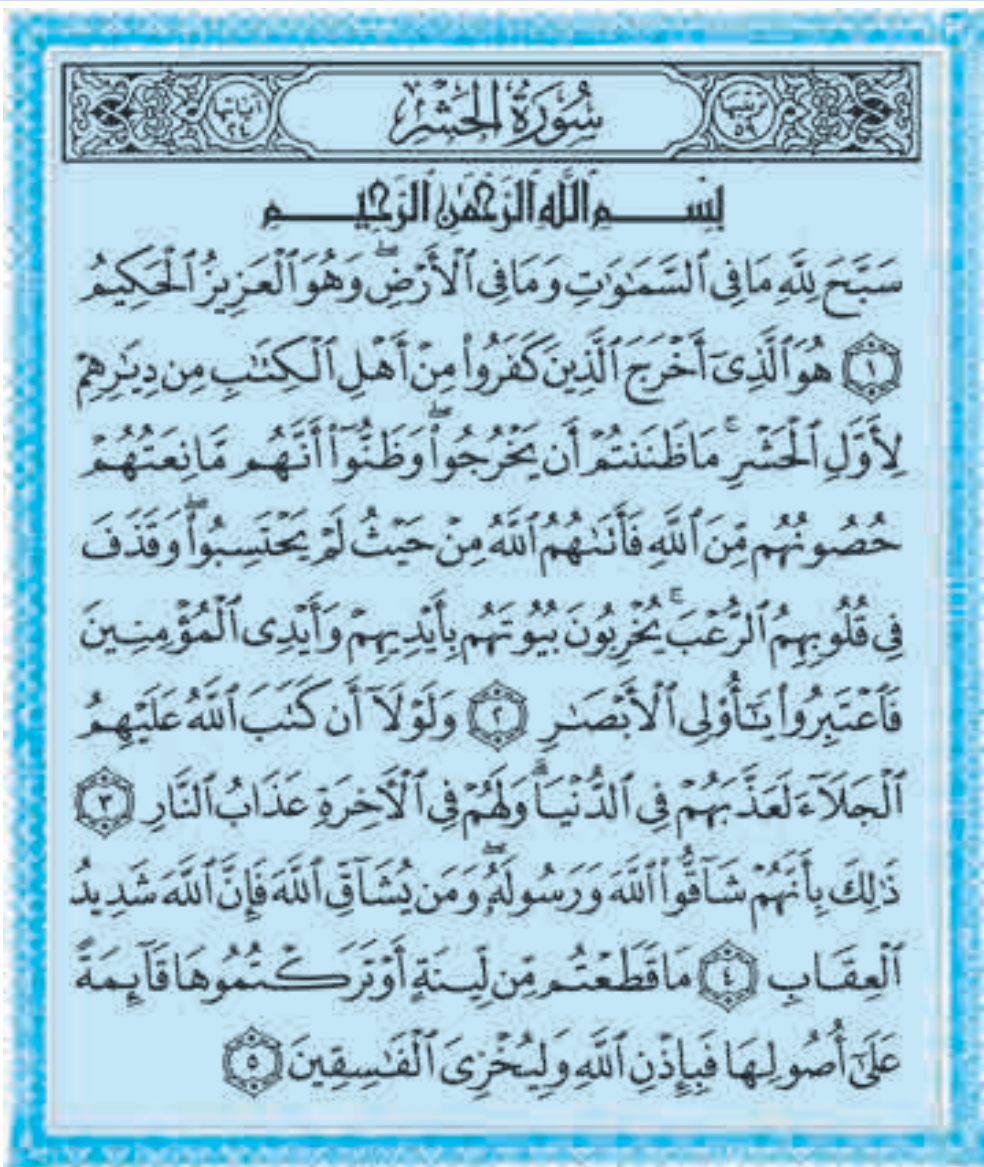 ترتيبها ٥٩ سُورَةُ الحَشْرِ آياتها ٢٤
بِسْمِ ٱللَّهِ ٱلرَّحْمَٰنِ ٱلرَّحِيمِ
سَبَّحَ لِلَّهِ مَا فِى ٱلسَّمَٰوَٰتِ وَمَا فِى ٱلْأَرْضِ ۖ وَهُوَ ٱلْعَزِيزُ ٱلْحَكِيمُ
١ هُوَ ٱلَّذِىٓ أَخْرَجَ ٱلَّذِينَ كَفَرُوا۟ مِنْ أَهْلِ ٱلْكِتَٰبِ مِن دِيَٰرِهِمْ
لِأَوَّلِ ٱلْحَشْرِ ۚ مَا ظَنَنتُمْ أَن يَخْرُجُوا۟ ۖ وَظَنُّوٓا۟ أَنَّهُم مَّانِعَتُهُمْ
حُصُونُهُم مِّنَ ٱللَّهِ فَأَتَىٰهُمُ ٱللَّهُ مِنْ حَيْثُ لَمْ يَحْتَسِبُوا۟ ۖ وَقَذَفَ
فِى قُلُوبِهِمُ ٱلرُّعْبَ ۚ يُخْرِبُونَ بُيُوتَهُم بِأَيْدِيهِمْ وَأَيْدِى ٱلْمُؤْمِنِينَ
فَٱعْتَبِرُوا۟ يَٰٓأُو۟لِى ٱلْأَبْصَٰرِ ٢ وَلَوْلَآ أَن كَتَبَ ٱللَّهُ عَلَيْهِمُ
ٱلْجَلَآءَ لَعَذَّبَهُمْ فِى ٱلدُّنْيَا ۖ وَلَهُمْ فِى ٱلْءَاخِرَةِ عَذَابُ ٱلنَّارِ ٣
ذَٰلِكَ بِأَنَّهُمْ شَآقُّوا۟ ٱللَّهَ وَرَسُولَهُۥ ۖ وَمَن يُشَآقِّ ٱللَّهَ فَإِنَّ ٱللَّهَ شَدِيدُ
ٱلْعِقَابِ ٤ مَا قَطَعْتُم مِّن لِّينَةٍ أَوْ تَرَكْتُمُوهَا قَآئِمَةً
عَلَىٰٓ أُصُولِهَا فَبِإِذْنِ ٱللَّهِ وَلِيُخْزِىَ ٱلْفَٰسِقِينَ ٥